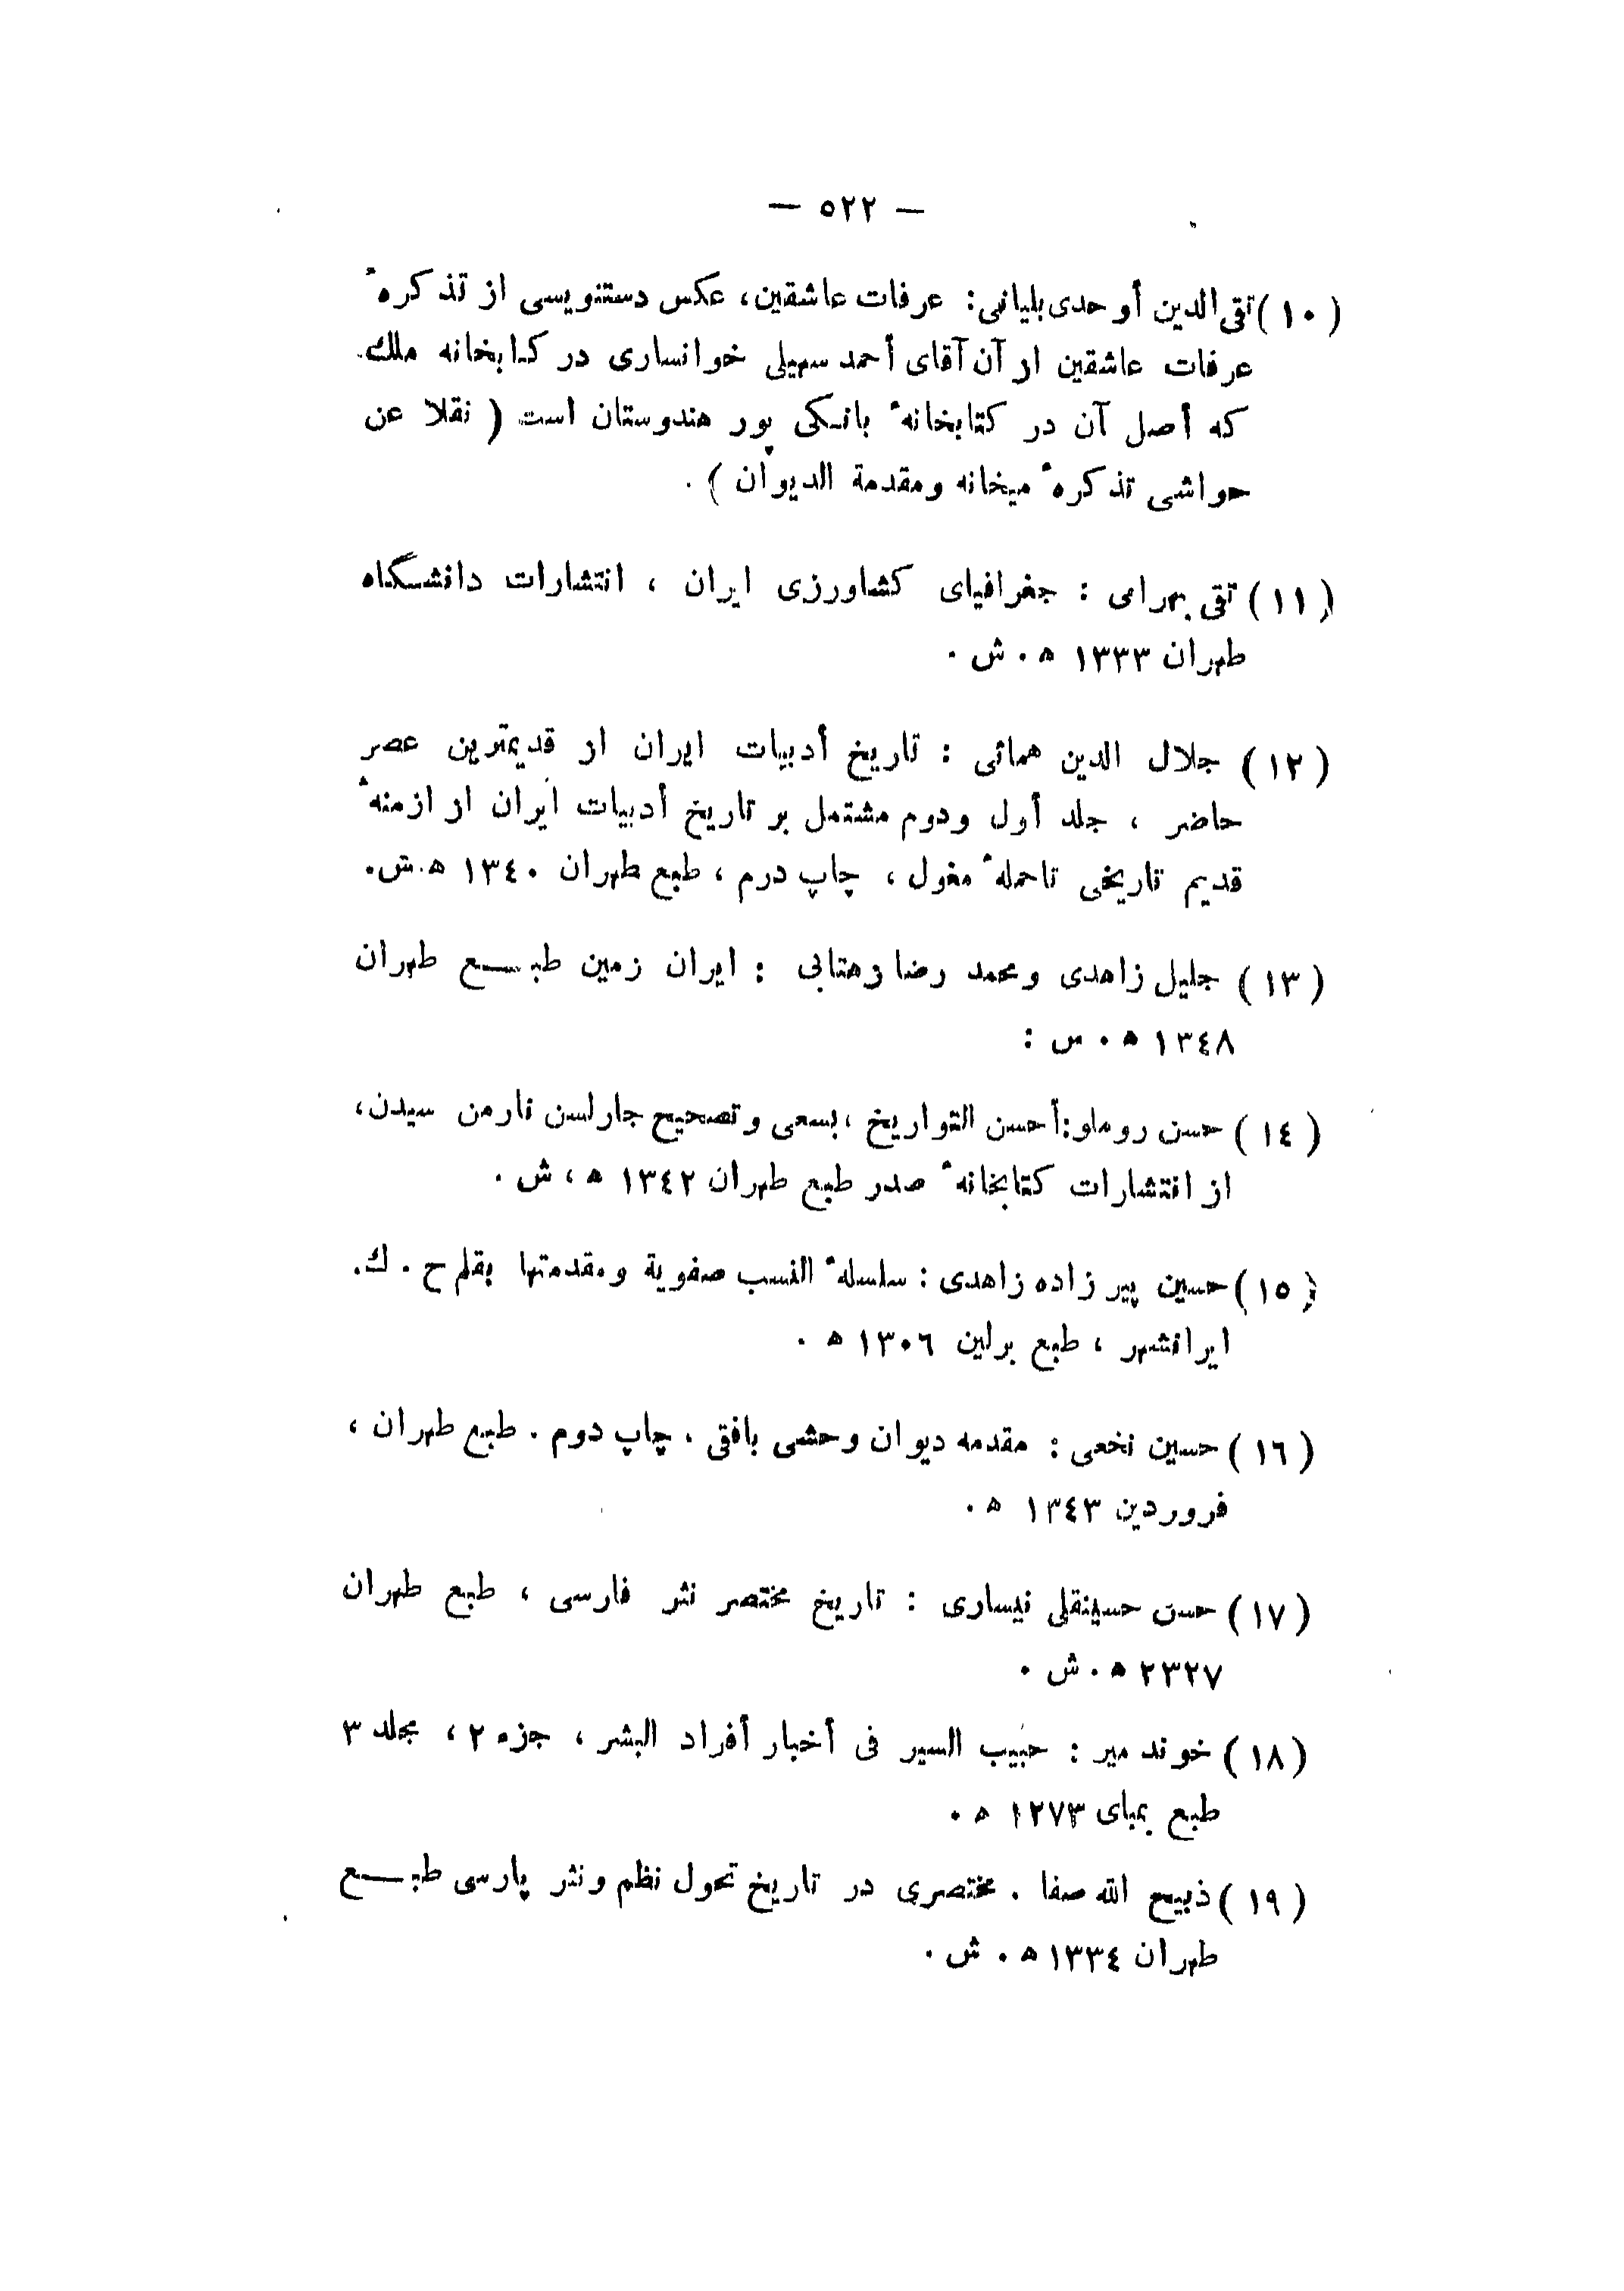 — ٥٢٢ —
(١٠) تقى الدين أوحدى بليانى: عرفات عاشقين، عكس دستنويسى از تذكرهٔ
عرفات عاشقين از آن آقاى أحمد سهيلى خوانسارى در كتابخانه ملك.
كه أصل آن در كتابخانهٔ بانكى پور هندوستان است ( نقلا عن
حواشى تذكرهٔ ميخانه ومقدمة الديوان ) .
(١١) تقى بهرامى : جغرافياى كشاورزى ايران ، انتشارات دانشگاه
طهران ١٣٣٣ ه . ش .
(١٢) جلال الدين همائى : تاريخ أدبيات ايران از قديمترين عصر
حاضر ، جلد أول ودوم مشتمل بر تاريخ أدبيات ايران از ازمنهٔ
قديم تاريخى تاحملهٔ مغول ، چاپ درم ، طبع طهران ١٣٤٠ ه.ش.
(١٣) جليل زاهدى ومحمد رضا زهتابى : ايران زمين طبـــع طهران
١٣٤٨ ه . س :
(١٤) حسن روملو:أحسن التواريخ ،بسعى وتصحيح جارلسن نارمن سيدن،
از انتشارات كتابخانهٔ صدر طبع طهران ١٣٤٢ ه ، ش .
(١٥) حسين پير زاده زاهدى : سلسلهٔ النسب صفوية ومقدمتها بقلم ح . ك.
ايرانشهر ، طبع برلين ١٣٠٦ ه .
(١٦) حسين نخعى : مقدمه ديوان وحشى بافقى . چاپ دوم . طبع طهران ،
فروردين ١٣٤٣ ه .
(١٧) حسن حسينقلى نيسارى : تاريخ مختصر نثر فارسى ، طبع طهران
٢٣٢٧ ه . ش .
(١٨) خوند مير : حبيب السير فى أخبار أفراد البشر ، جزء ٢ ، مجلد ٣
طبع بمباى ١٢٧٣ ه .
(١٩) ذبيح الله صفا . مختصرى در تاريخ تحول نظم ونثر پارسى طبـــع
طهران ١٣٣٤ ه . ش .